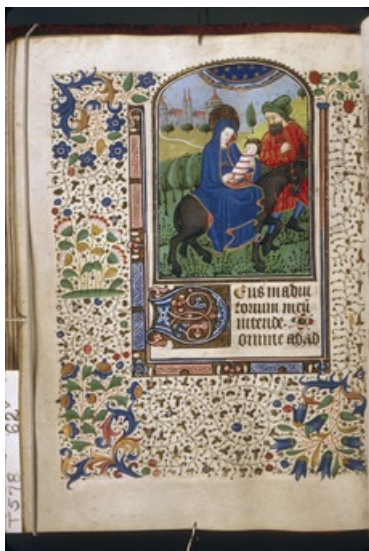 Deus in adiu
torium meu
intende. D
omine ad ad
T578 62v